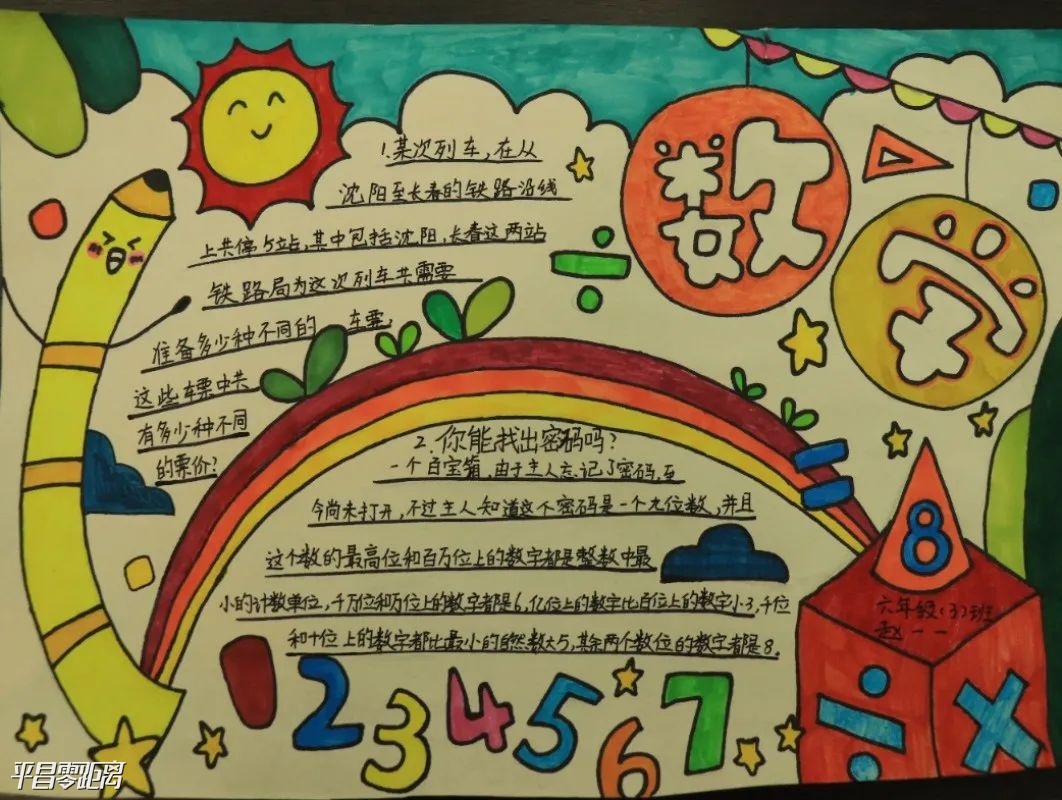 数学
1.某次列车,在从
沈阳至长春的铁路沿线
上共停5站,其中包括沈阳,长春这两站
铁路局为这次列车共需要
准备多少种不同的 车票,
这些车票中共
有多少种不同
的票价?
2.你能找出密码吗?
一个百宝箱,由于主人忘记了密码,至
今尚未打开,不过主人知道这个密码是一个九位数,并且
这个数的最高位和百万位上的数字都是整数中最
小的计数单位,千万位和万位上的数字都是6,亿位上的数字比百位上的数字小3,千位
和十位上的数字都比最小的自然数大5,其余两个数位的数字都是8。
8
六年级(3)班
赵一一
÷ ×
1 2 3 4 5 6 7
平昌零距离